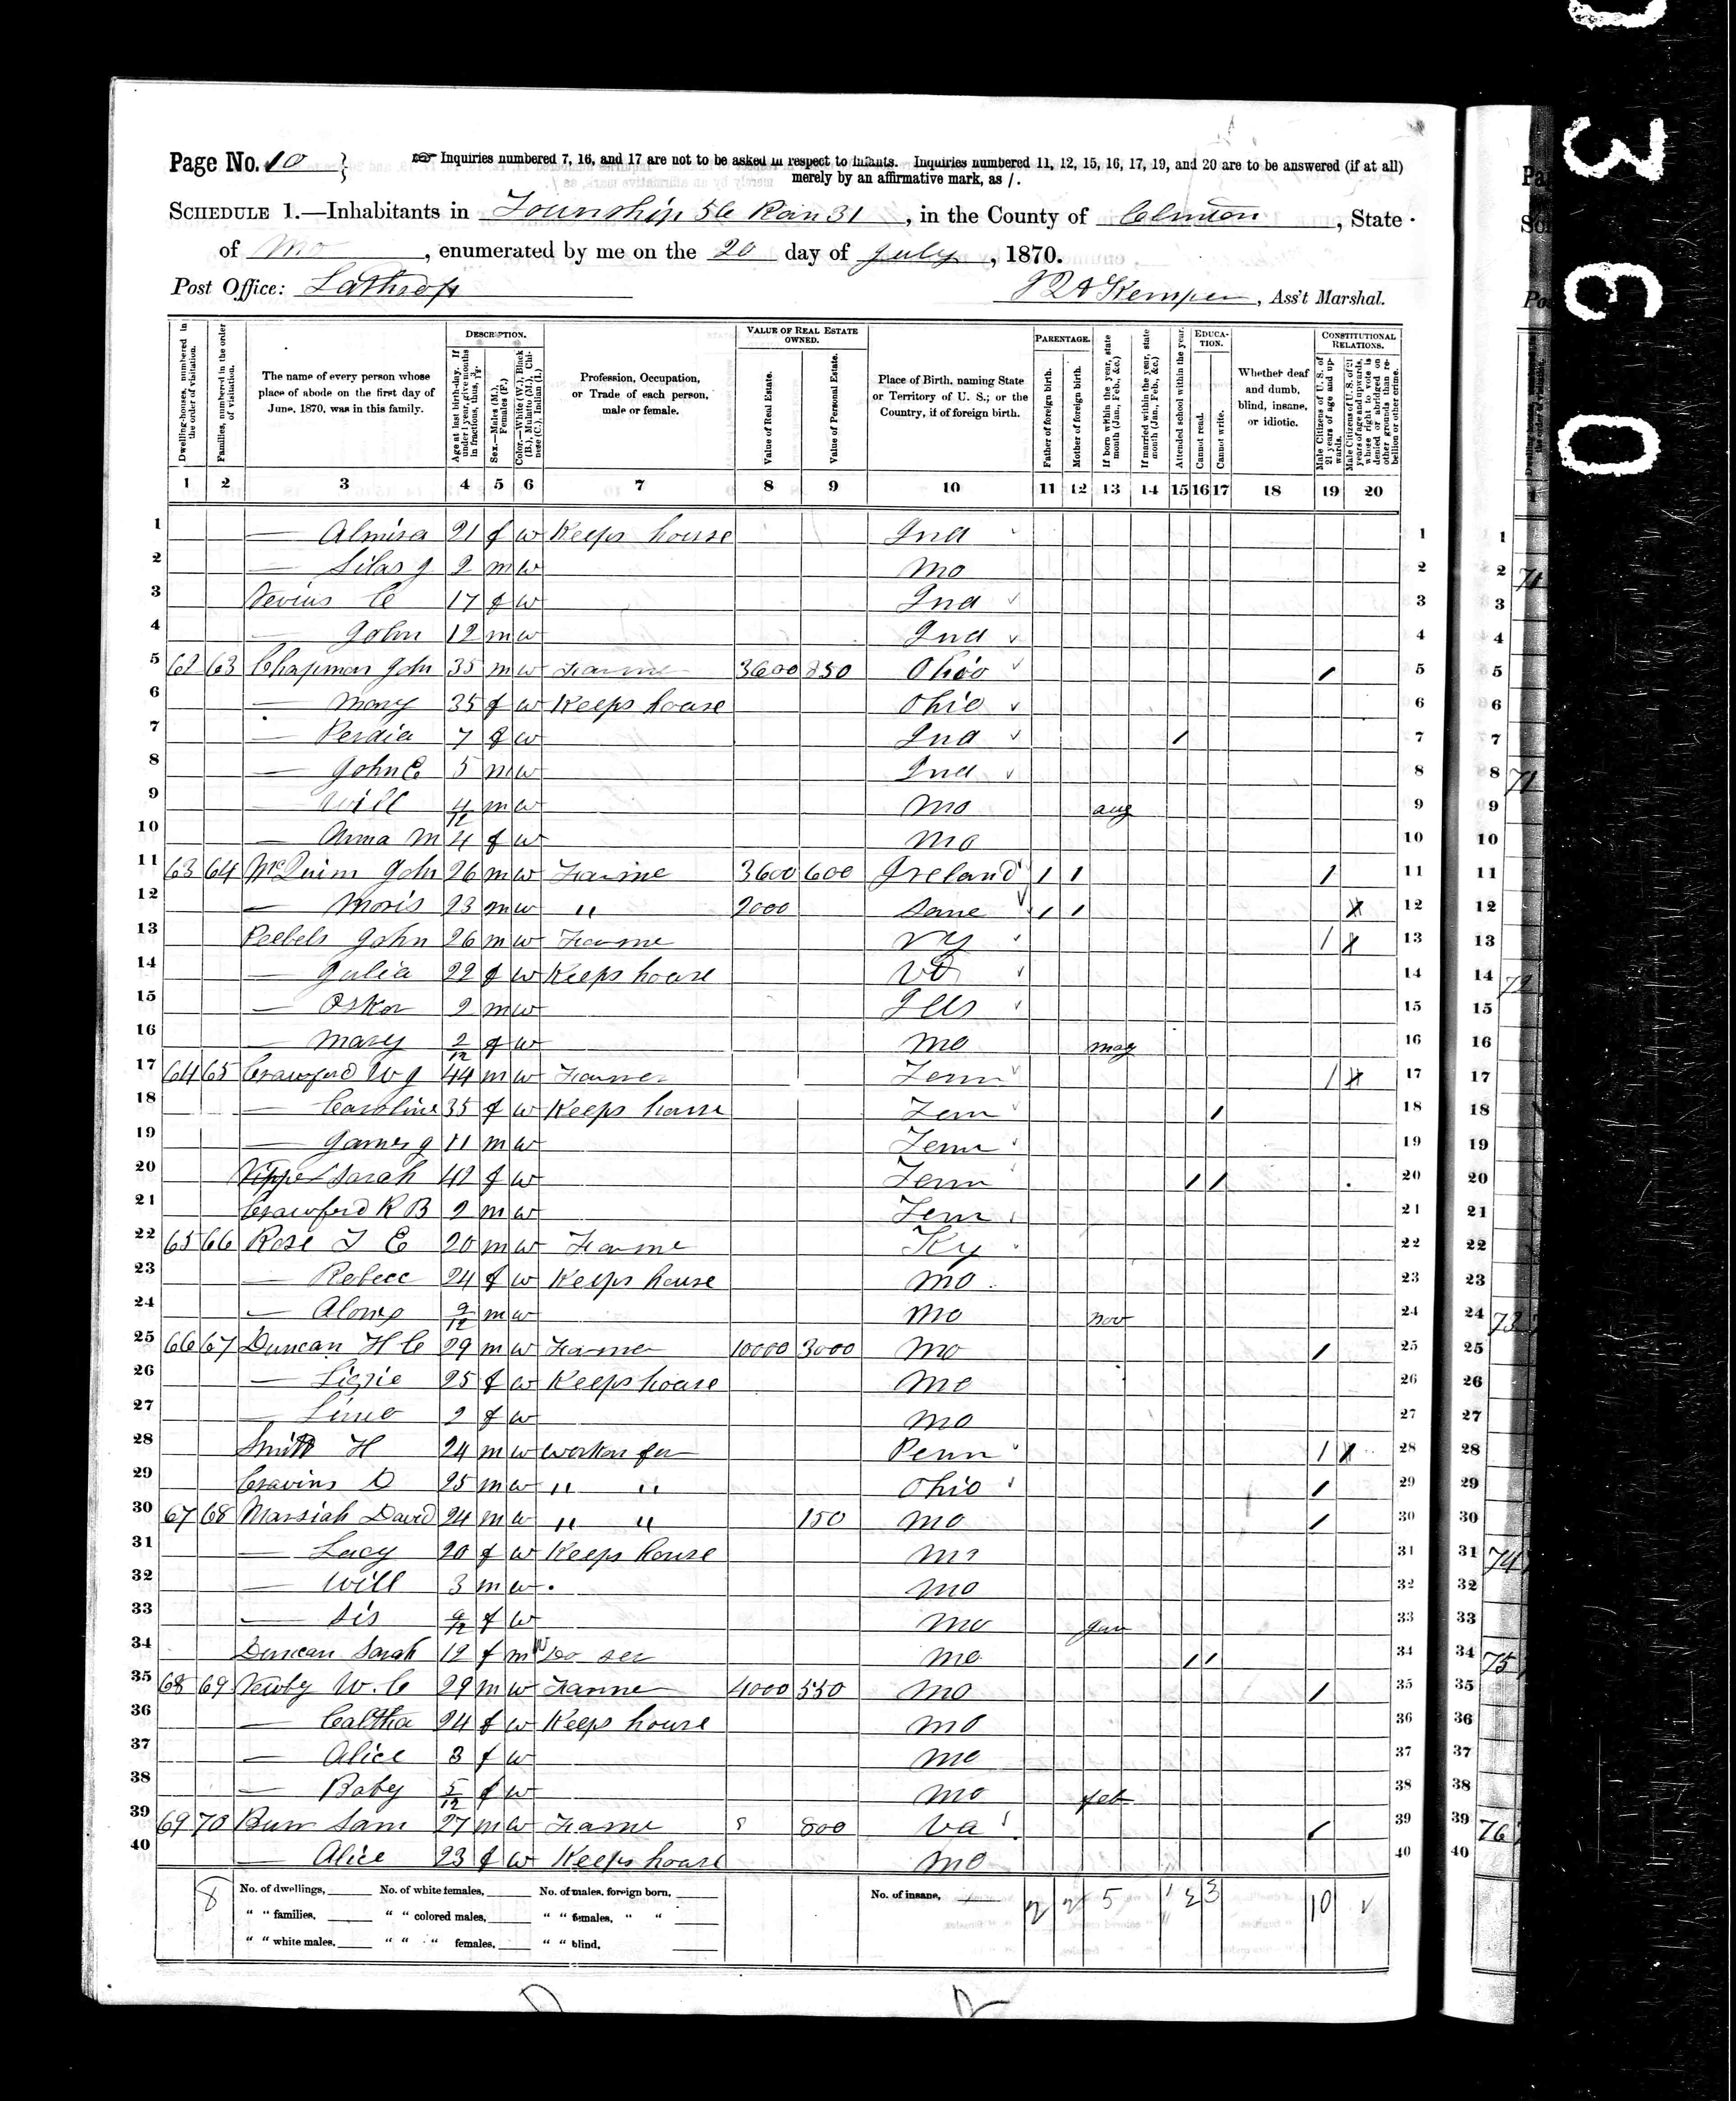 Page No. 10
☞ Inquiries numbered 7, 16, and 17 are not to be asked in respect to infants. Inquiries numbered 11, 12, 15, 16, 17, 19, and 20 are to be answered (if at all)
merely by an affirmative mark, as /.
SCHEDULE 1.—Inhabitants in Township 56 Ran 31, in the County of Clinton, State
of Mo, enumerated by me on the 20 day of July, 1870.
Post Office: Lathrop
Kemper, Ass't Marshal.
DESCRIPTION.
VALUE OF REAL ESTATE OWNED.
PARENTAGE.
EDUCATION.
CONSTITUTIONAL RELATIONS.
Dwelling-houses, numbered in the order of visitation.
Families, numbered in the order of visitation.
The name of every person whose place of abode on the first day of June, 1870, was in this family.
Age at last birth-day. If under 1 year, give months in fractions, thus, 3/12.
Sex.—Males (M.), Females (F.)
Color.—White (W.), Black (B.), Mulatto (M.), Chinese (C.), Indian (I.)
Profession, Occupation, or Trade of each person, male or female.
Value of Real Estate.
Value of Personal Estate.
Place of Birth, naming State or Territory of U. S.; or the Country, if of foreign birth.
Father of foreign birth.
Mother of foreign birth.
If born within the year, state month (Jan., Feb., &c.)
If married within the year, state month (Jan., Feb., &c.)
Attended school within the year.
Cannot read.
Cannot write.
Whether deaf and dumb, blind, insane, or idiotic.
Male Citizens of U. S. of 21 years of age and upwards.
Male Citizens of U. S. of 21 years of age and upwards, whose right to vote is denied or abridged on other grounds than rebellion or other crime.
1 2 3 4 5 6 7 8 9 10 11 12 13 14 15 16 17 18 19 20
1 — Almira 21 f w Keeps house Ind 1
2 — Silas J 2 m w Mo 2
3 Nevins C 17 f w Ind 3
4 — John 12 m w Ind 4
5 62 63 Chapman John 35 m w Farme 3600 850 Ohio / 5
6 — Mary 35 f w Keeps house Ohio 6
7 — Perdia 7 f w Ind / 7
8 — John C 5 m w Ind 8
9 — Will 4/12 m w Mo aug 9
10 — Anna M 4 f w Mo 10
11 63 64 McQuinn John 26 m w Farme 3600 600 Ireland / / / 11
12 — Moris 23 m w " 2000 Same / / 12
13 Peebels John 26 m w Farme / 13
14 — Julia 22 f w Keeps house 14
15 — Oskor 2 m w Ills 15
16 — Mary 2/12 f w Mo may 16
17 64 65 Crawford W J 44 m w Farmer Tenn / 17
18 — Caroline 35 f w Keeps house Tenn / 18
19 — James J 11 m w Tenn 19
20 Sarah 42 f w Tenn / / 20
21 Crawford R B 2 m w Tenn 21
22 65 66 Rose J E 20 m w Farme Ky 22
23 — Rebecc 24 f w Keeps house Mo 23
24 — 9/12 m w Mo nov 24
25 66 67 Duncan H C 29 m w Farmer 10000 3000 Mo / 25
26 — Lizzie 25 f w Keeps house Mo 26
27 — 2 f w Mo 27
28 Smith H 24 m w Penn / 28
29 Cravins D 25 m w " " Ohio / 29
30 67 68 Marsiah David 24 m w " " 150 Mo / 30
31 — Lucy 20 f w Keeps house Mo 31
32 — Will 3 m w Mo 32
33 — Sis f w Mo Jan 33
34 Duncan Sarah 12 f m Mo / / 34
35 68 69 Newby W. C 29 m w Farme 4000 550 Mo / 35
36 — Caltha 24 f w Keeps house Mo 36
37 — Alice 3 f w Mo 37
38 — Baby 5/12 f w Mo feb 38
39 69 70 Burr Sam 27 m w Farme 800 Va / 39
40 — Alice 23 f w Keeps house Mo 40
8
No. of dwellings, No. of white females, No. of males, foreign born, No. of insane,
" " families, " " colored males, " " females, " "
" " white males, " " " females, " " blind,
2 2 5 1 2 3 10